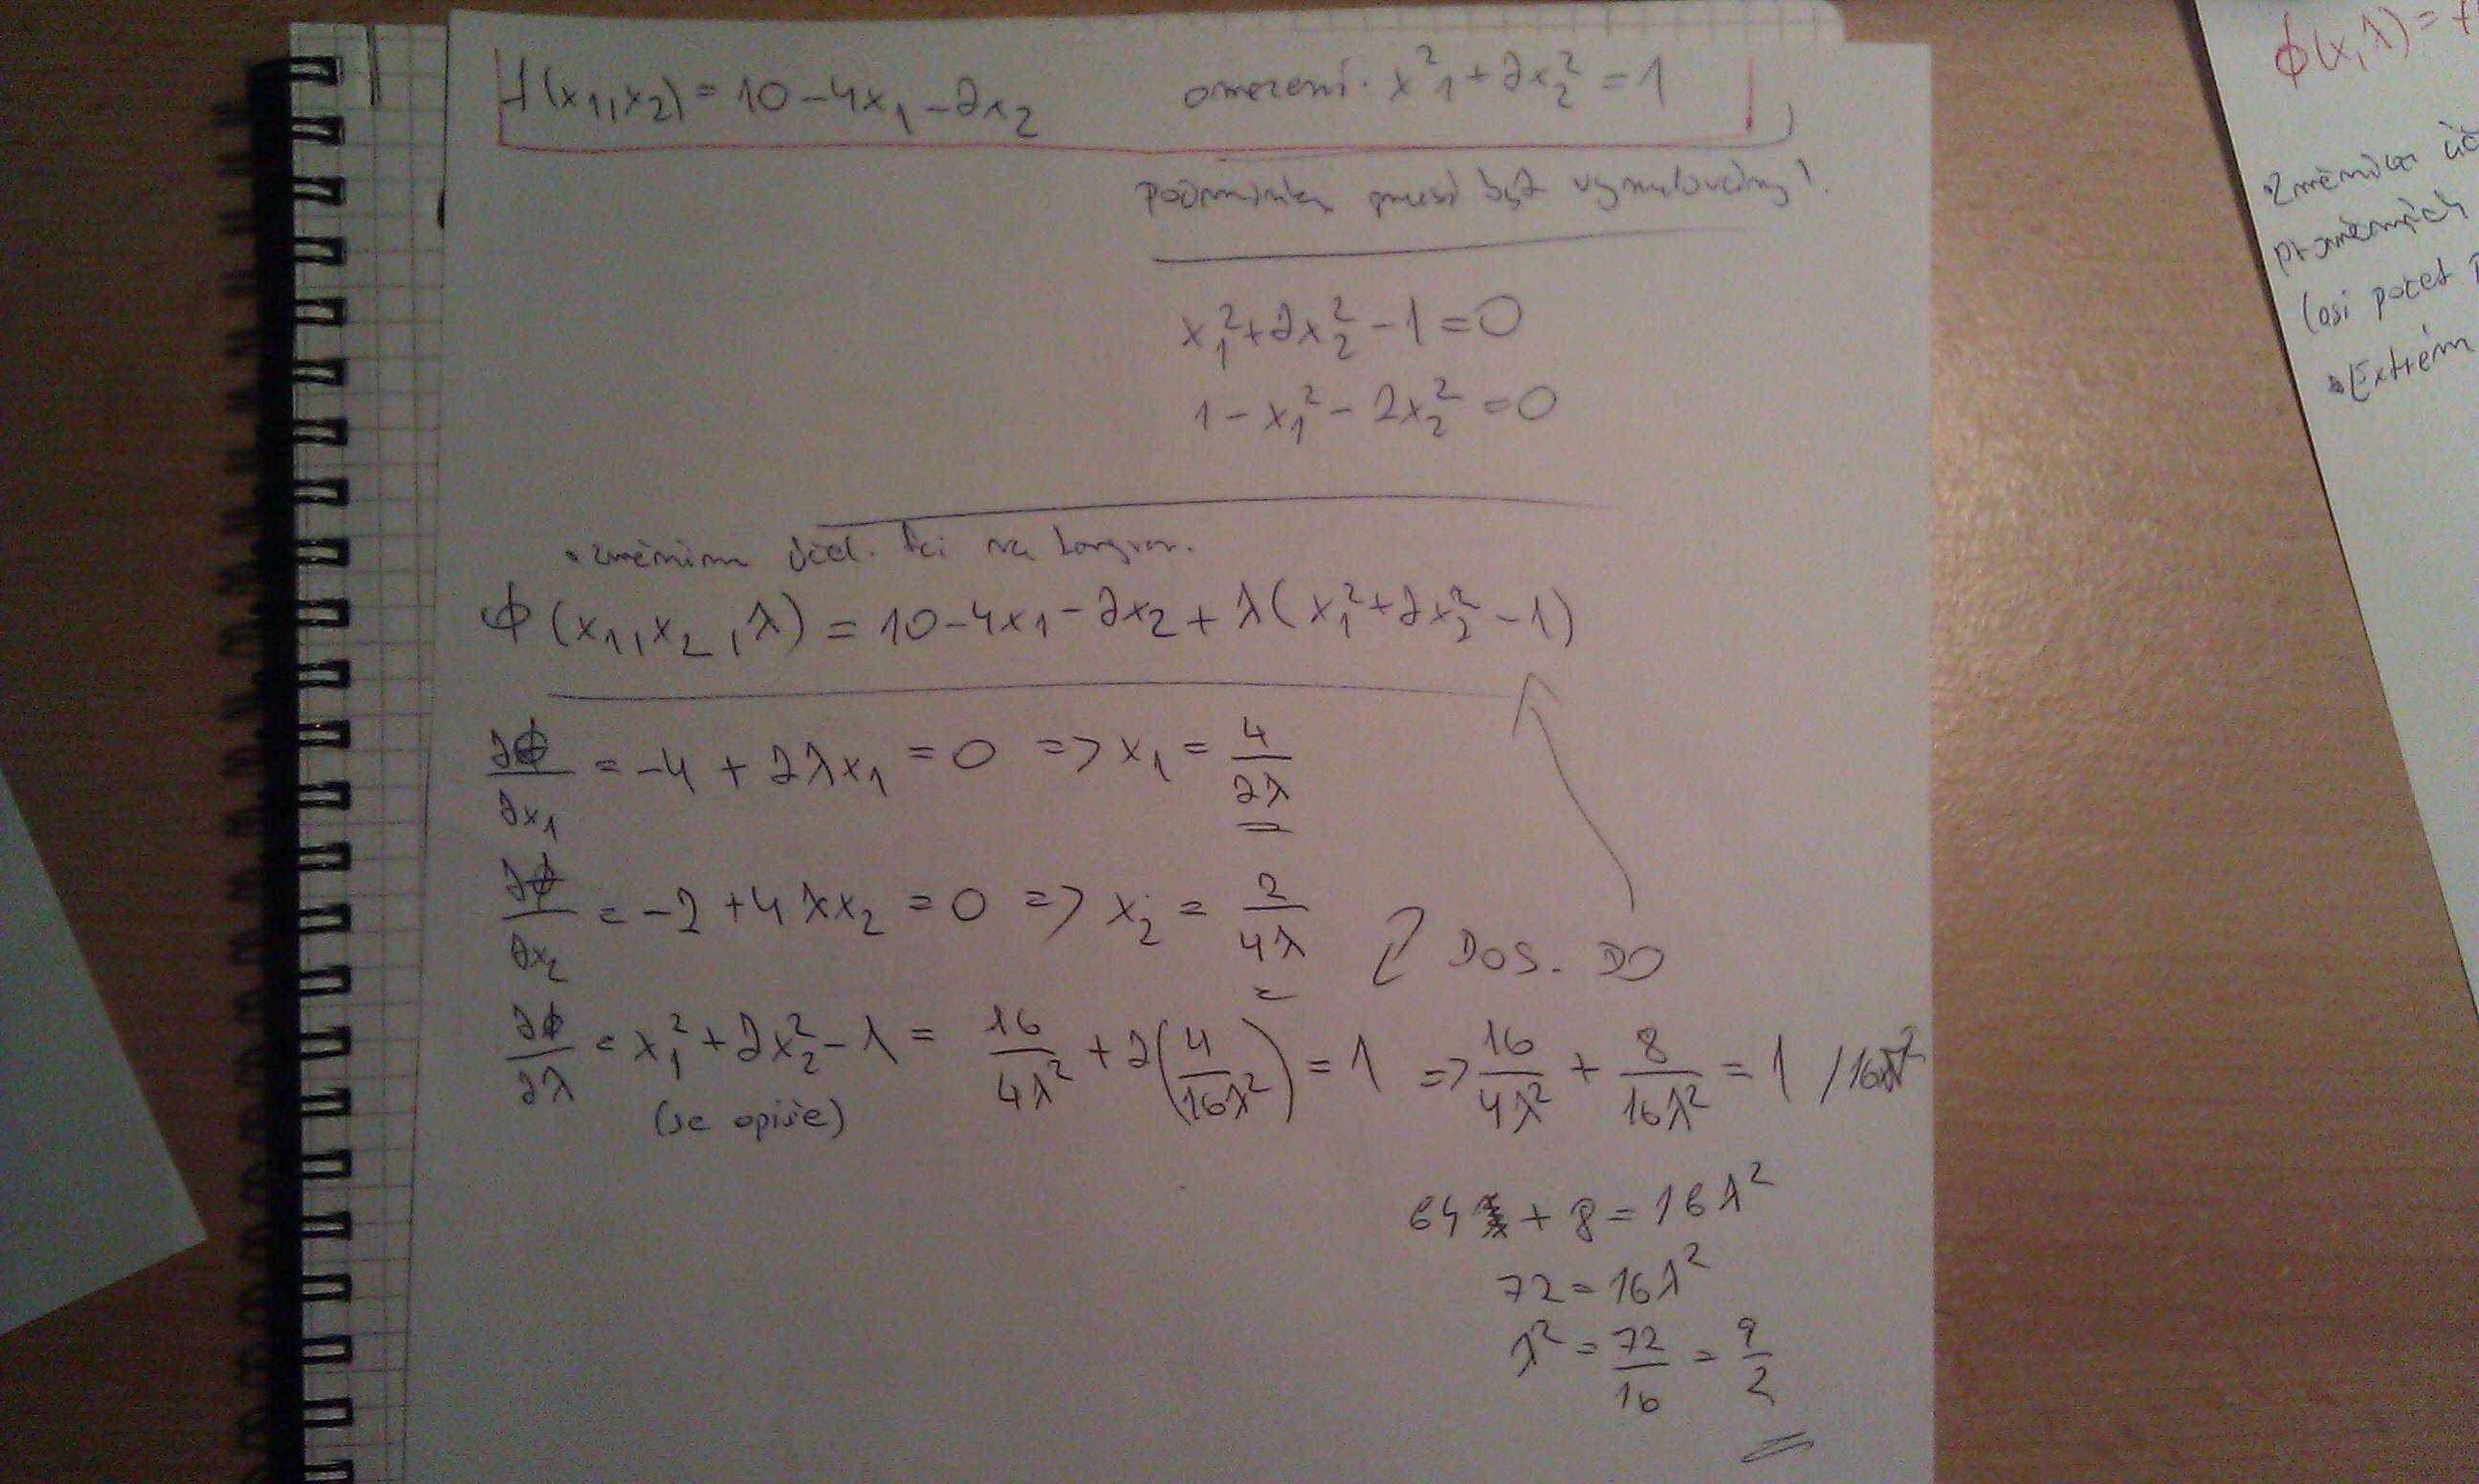 f(x₁,x₂) = 10 - 4x₁ - 2x₂ omezení: x²₁ + 2x₂² = 1
podmínka musí být vynulovaný!
x₁² + 2x₂² - 1 = 0
1 - x₁² - 2x₂² = 0
• změním účel. fci na Langran.
ϕ(x₁,x₂,λ) = 10 - 4x₁ - 2x₂ + λ(x₁² + 2x₂² - 1)
∂ϕ/∂x₁ = -4 + 2λx₁ = 0 => x₁ = 4/2λ
∂ϕ/∂x₂ = -2 + 4λx₂ = 0 => x₂ = 2/4λ
DOS. DO
∂ϕ/∂λ = x₁² + 2x₂² - 1 = 16/4λ² + 2(4/16λ²) = 1 => 16/4λ² + 8/16λ² = 1 /16λ²
(se opíše)
64 + 8 = 16λ²
72 = 16λ²
λ² = 72/16 = 9/2
ϕ(x,λ) = f
• změníme úč
proměnných
(asi počet p
• Extrém